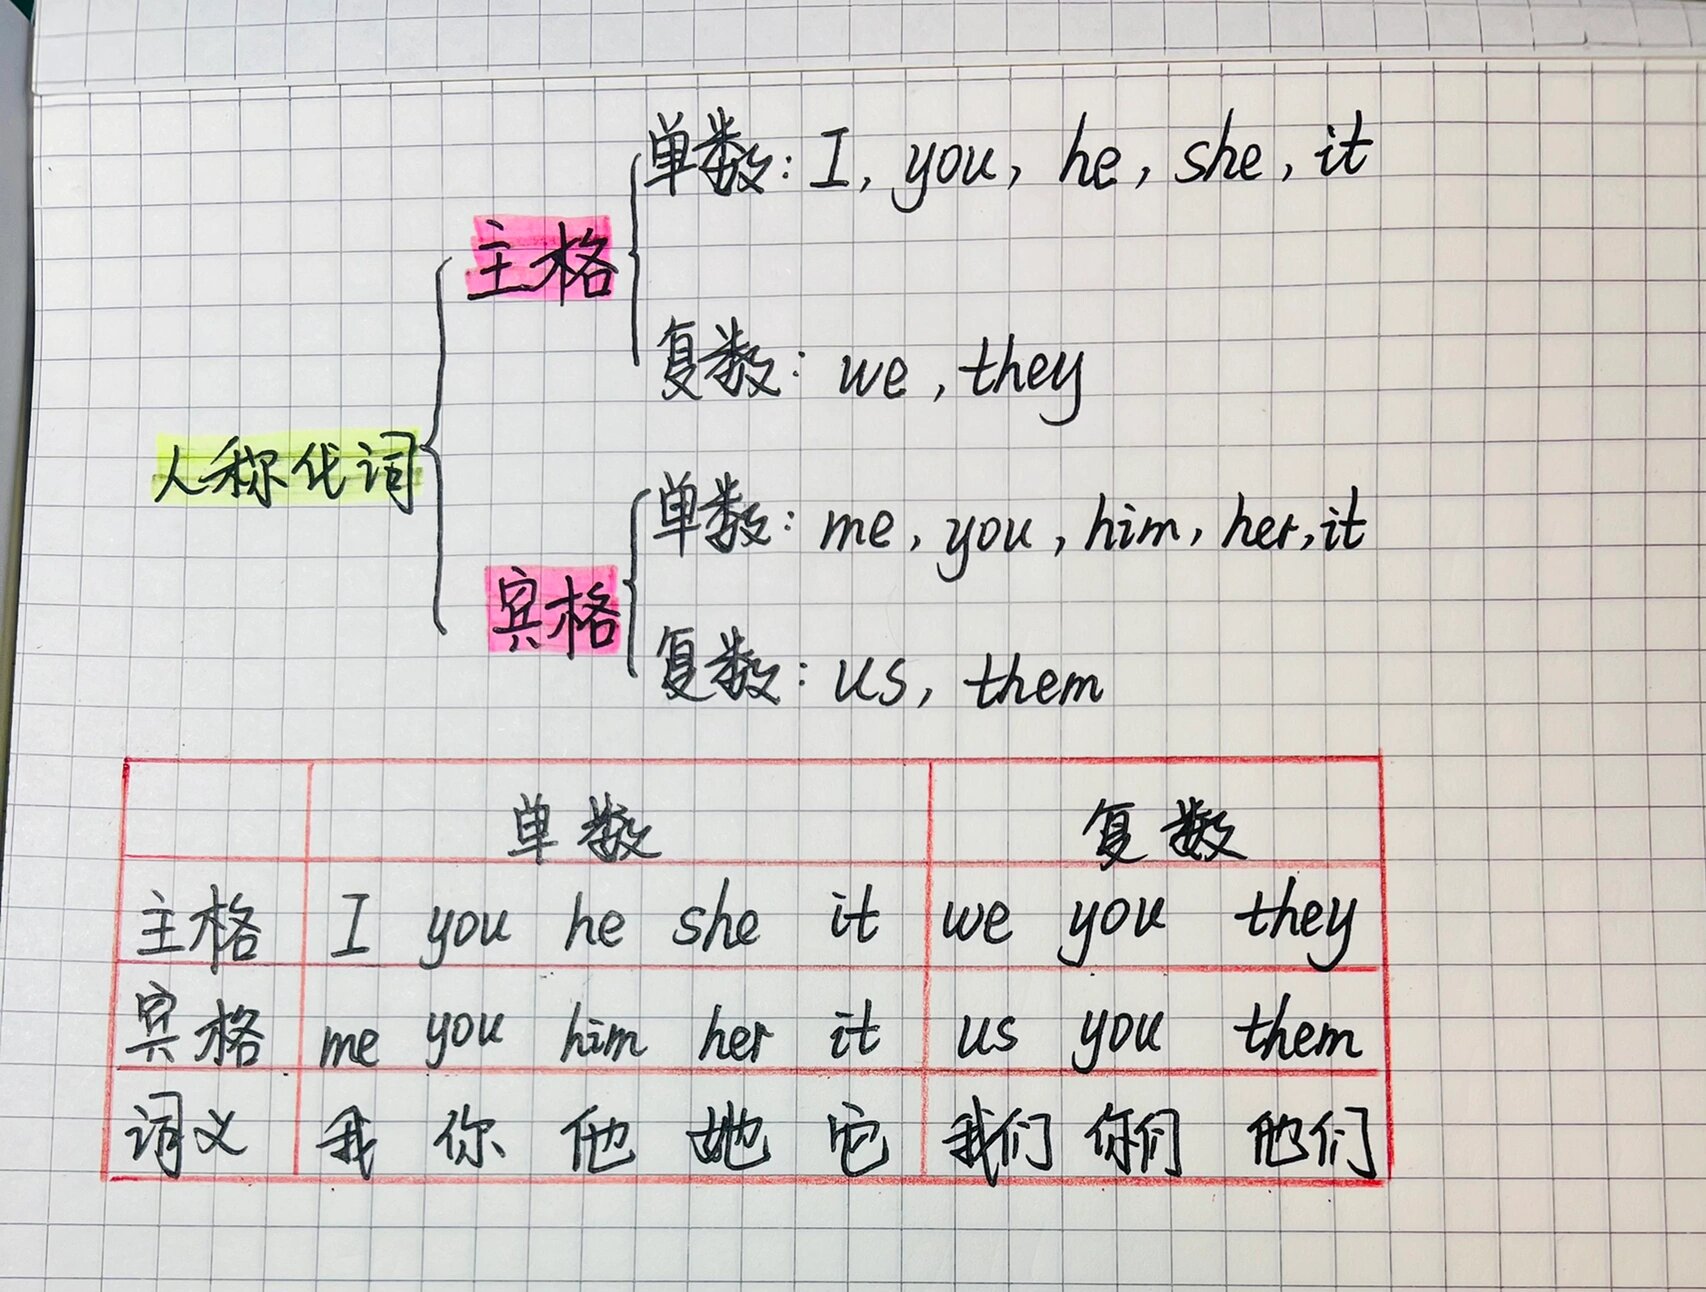 单数: I, you, he, she, it
主格
复数: we, they
人称代词
单数: me, you, him, her, it
宾格
复数: us, them
单数 复数
主格 I you he she it we you they
宾格 me you him her it us you them
词义 我 你 他 她 它 我们 你们 他们